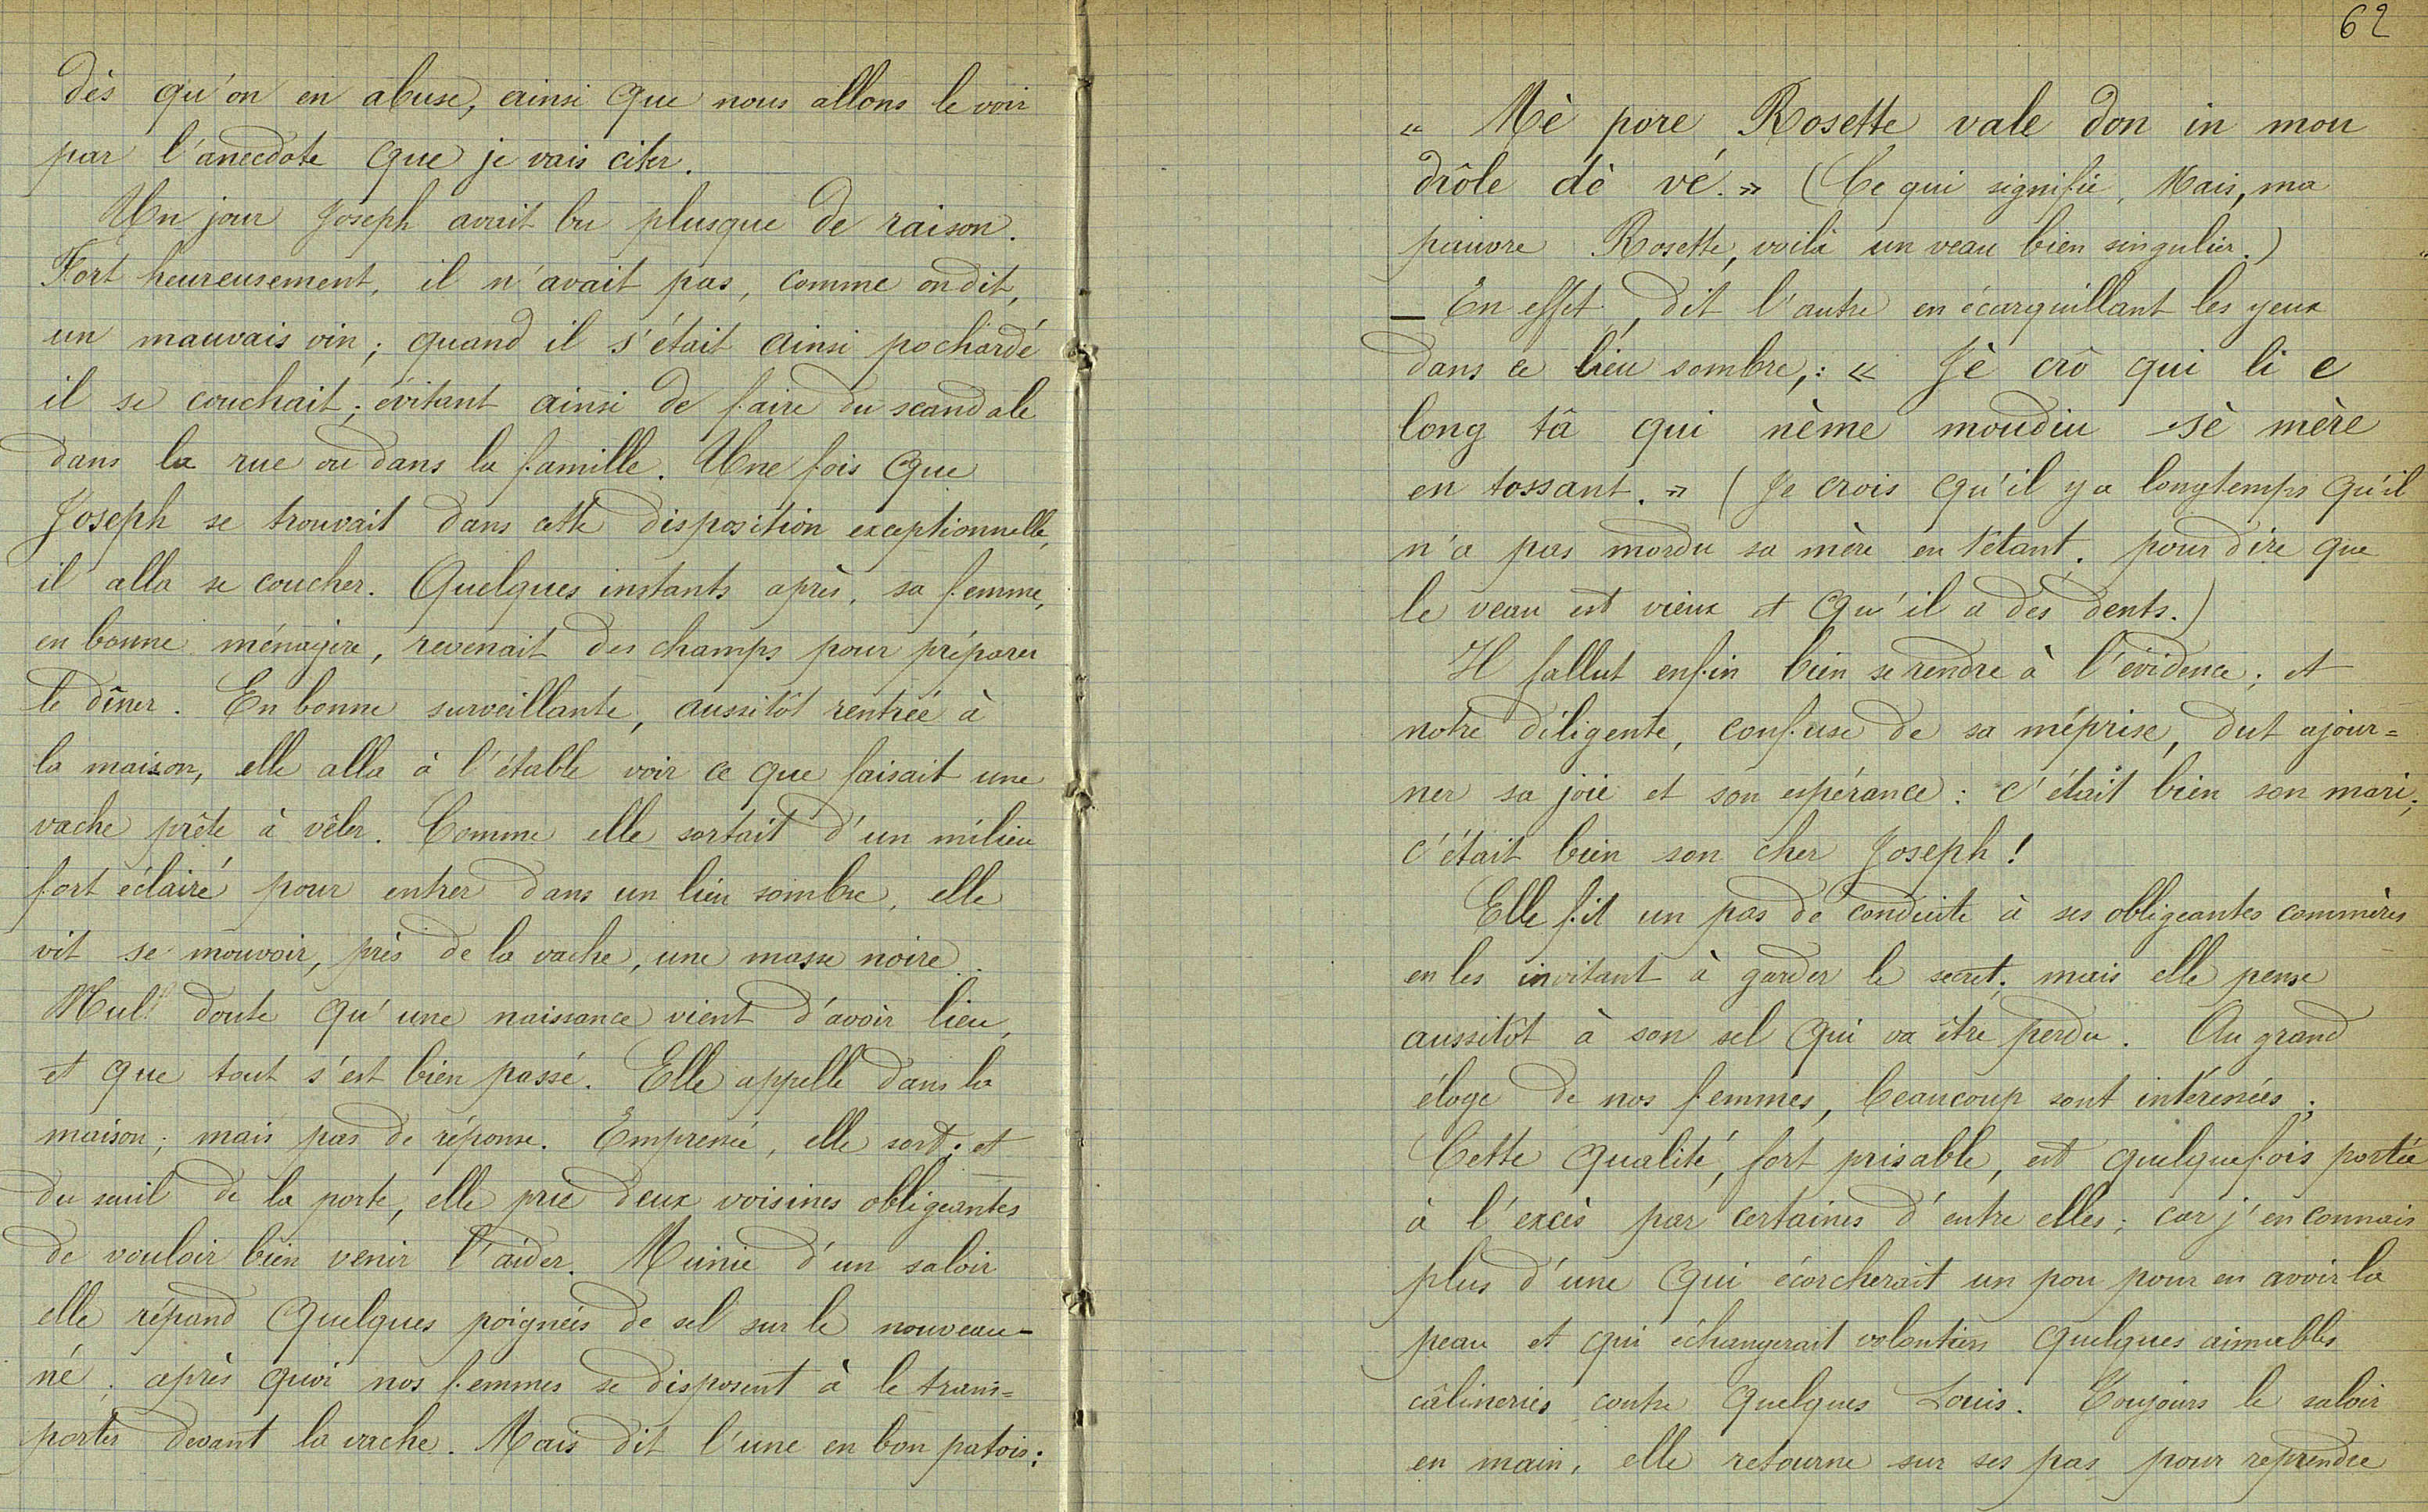 dès qu'on en abuse, ainsi que nous allons le voir
par l'anecdote que je vais citer.
Un jour Joseph avait bu plusque de raison.
Fort heureusement, il n'avait pas, comme on dit,
un mauvais vin; quand il s'était ainsi pochardé
il se couchait; évitant ainsi de faire du scandale
dans la rue ou dans la famille. Une fois que
Joseph se trouvait dans cette disposition exceptionnelle,
il alla se coucher. Quelques instants après, sa femme,
en bonne ménagère, revenait des champs pour préparer
le dîner. En bonne surveillante, aussitôt rentrée à
la maison, elle alla à l'étable voir ce que faisait une
vache prête à vêler. Comme elle sortait d'un milieu
fort éclairé pour entrer dans un lieu sombre, elle
vit se mouvoir, près de la vache, une masse noire.
Nul doute qu'une naissance vient d'avoir lieu,
et que tout s'est bien passé. Elle appelle dans la
maison; mais pas de réponse. Empressée, elle sort; et
du seuil de la porte, elle prie deux voisines obligeantes
de vouloir bien venir l'aider. Munie d'un saloir
elle répand quelques poignées de sel sur le nouveau-
né; après quoi nos femmes se disposent à le trans=
porter devant la vache. Mais dit l'une en bon patois:
62
« Mè pore Rosette vale don in mou
drôle dè vé. » (Ce qui signifie, Mais, ma
pauvre Rosette, voilà un veau bien singulier.)
_ En effet, dit l'autre en écarquillant les yeux
dans ce lieu sombre,: « Jè crô qui li e
long tâ qui nème moudiu sè mère
en tossant. » (Je crois qu'il y a longtemps qu'il
n'a pas mordu sa mère en têtant, pour dire que
le veau est vieux et qu'il a des dents.)
Il fallut enfin bien se rendre à l'évidence; et
notre diligente, confuse de sa méprise, dut ajour=
ner sa joie et son espérance: c'était bien son mari;
c'était bien son cher Joseph!
Elle fit un pas de conduite à ses obligeantes commères
en les invitant à garder le secret; mais elle pense
aussitôt à son sel qui va être perdu. Au grand
éloge de nos femmes, beaucoup sont intéressées;
Cette qualité, fort prisable, est quelquefois portée
à l'excès par certaines d'entre elles; car j'en connais
plus d'une qui écorcherait un pou pour en avoir la
peau et qui échangerait volontiers quelques aimables
câlineries contre quelques Louis. Toujours le saloir
en main, elle retourne sur ses pas pour reprendre